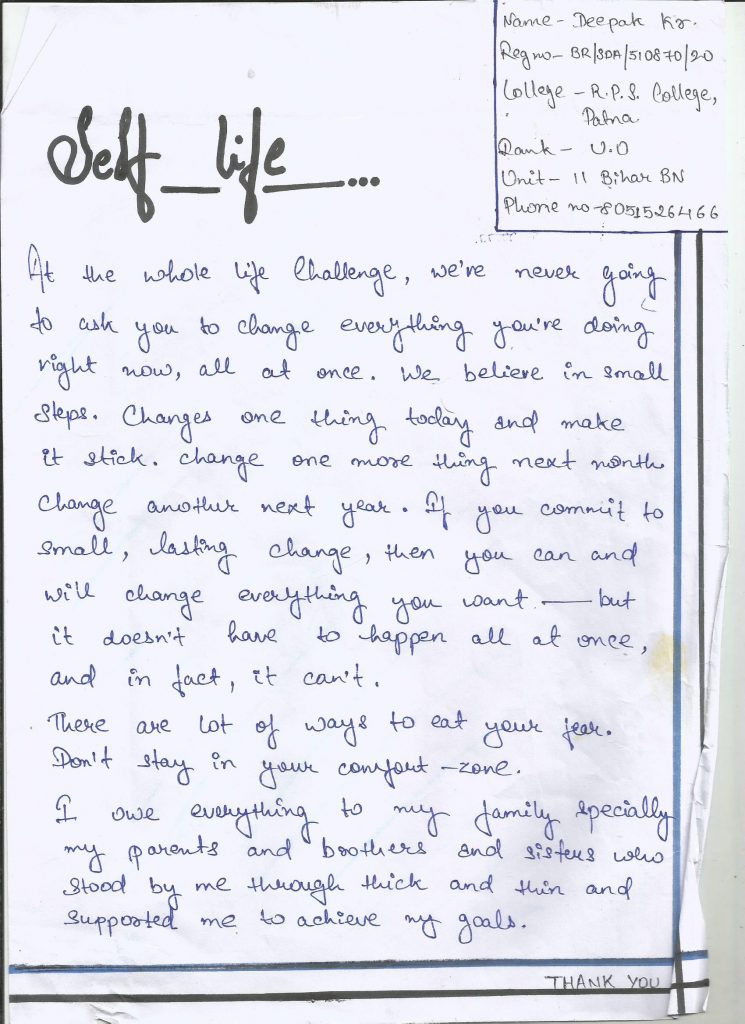 Name - Deepak Kr.
Reg no - BR/SDA/510870/20
College - R.P.S. College,
Patna
Rank - U.O
Unit - 11 Bihar BN
Phone no - 8051526466
Self_life___...
At the whole life Challenge, we're never going
to ask you to change everything you're doing
right now, all at once. We believe in small
Steps. Changes one thing today and make
it stick. change one more thing next month.
Change another next year. If you commit to
small, lasting change, then you can and
will change everything you want — but
it doesn't have to happen all at once,
and in fact, it can't.
There are lot of ways to eat your fear.
Don't stay in your comfort-zone.
I owe everything to my family specially
my parents and boothers and sisters who
stood by me through thick and thin and
supported me to achieve my goals.
THANK YOU